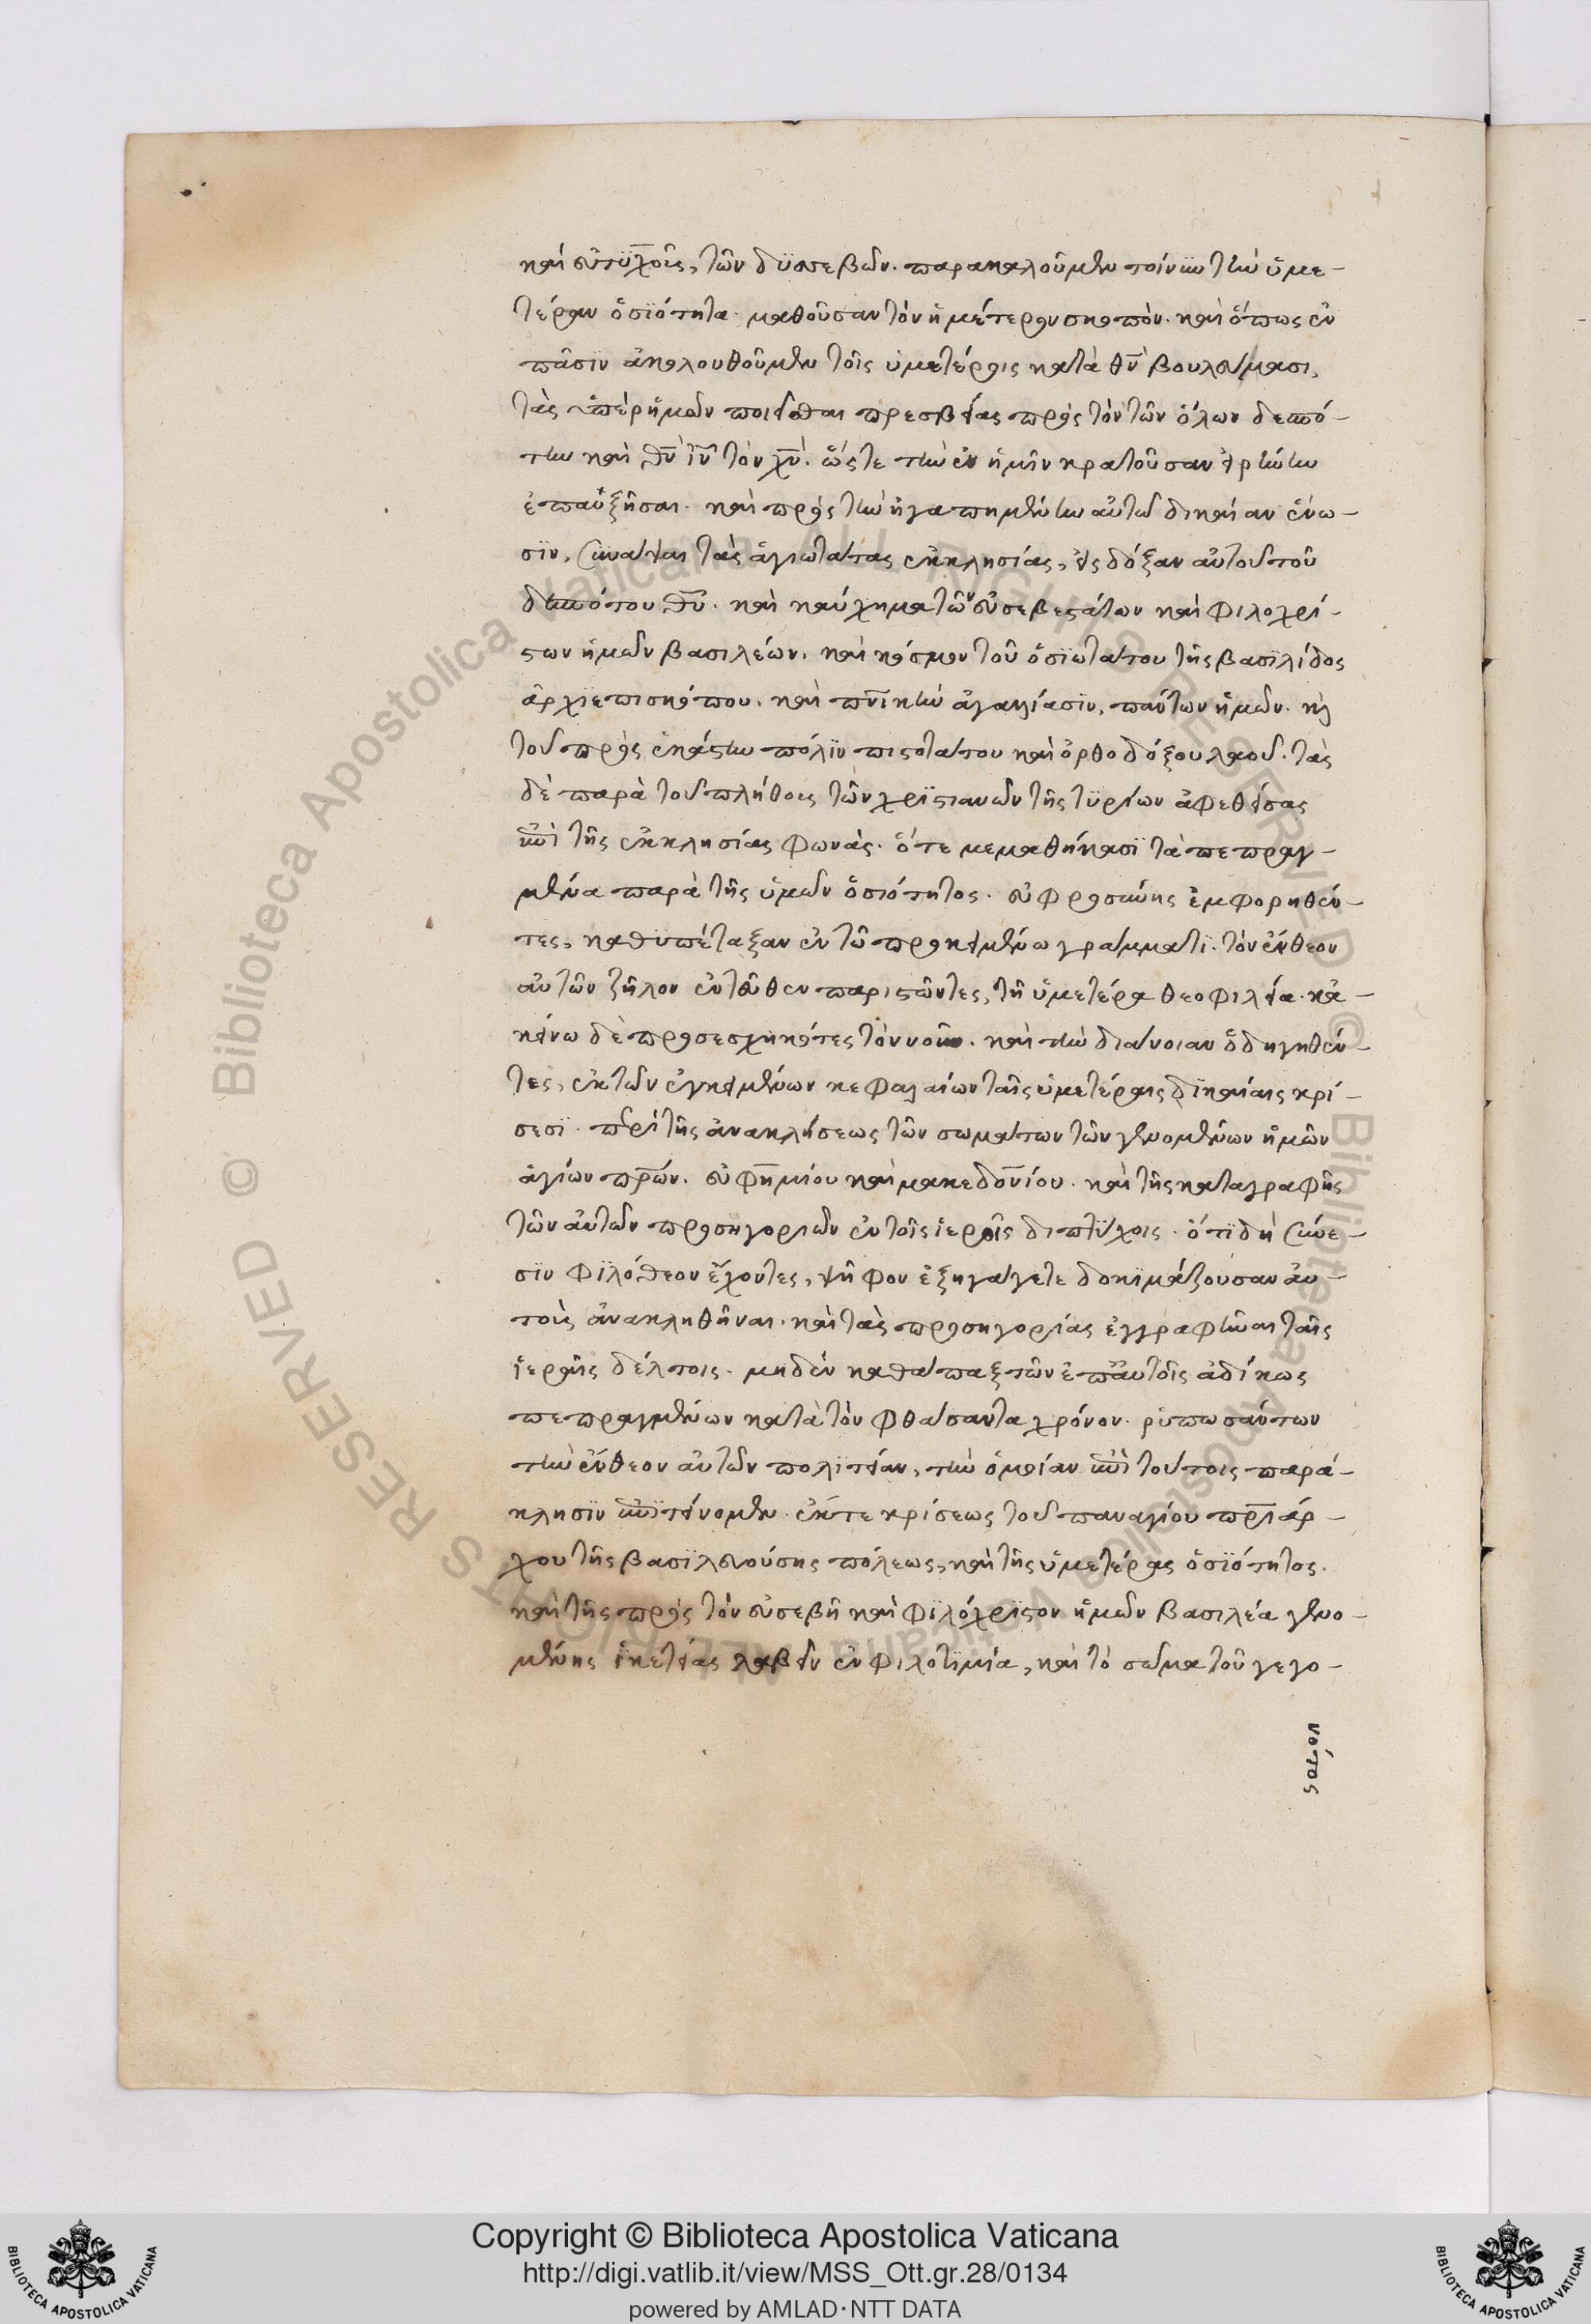 καὶ εὐτυχοῖς, τῶν δϋσσεβῶν. παρακαλοῦμεν τοίνυν τὴν ὑμε-
τέραν ὁσϊότητα. μαθοῦσαν τὸν ἡμέτερον σκοπὸν. καὶ ὅπως ἐν
πᾶσιν ἀκολουθοῦμεν τοῖς ὑμετέροις κατὰ θν̅ βουλεύμασι,
τὰς ὑπὲρ ἡμῶν ποιεῖσθαι πρεσβείας πρὸς τὸν τῶν ὅλων δεσπό-
την καὶ θν̅ ἰν̅ τὸν χν̅. ὥστε τὴν ἐν ἡμῖν κρατοῦσαν εἰρήνην
ἐπαυξῆσαι. καὶ πρὸς τὴν ἠγαπημένην αὐτῶ δικαίαν ἕνω-
σϊν, συνάψαι τὰς ἁγιωτάτας ἐκκλησίας, εἰς δόξαν αὐτοῦ τοῦ
δεσπότου θυ̅. καὶ καύχημα τῶν εὐσεβεστάτων καὶ φιλοχρί-
στων ἡμῶν βασιλέων. καὶ κόσμον τοῦ ὁσϊωτάτου τῆς βασϊλίδος
ἀρχϊεπισκόπου. καὶ πν̅ικὴν ἀγαλλίασϊν, πάντων ἡμῶν. κὶ
τοῦ πρὸς ἑκάστην πόλϊν πιστοτάτου καὶ ὀρθοδόξου λαοῦ. τὰς
δὲ παρὰ τοῦ πλήθους τῶν χρϊστιανῶν τῆς τϋρίων ἀφεθείσας
ἐπὶ τῆς ἐκκλησίας φωνὰς. ὅτε μεμαθήκασϊ τὰ πεπραγ-
μένα παρὰ τῆς ὑμῶν ὁσιότητος. εὐφροσύνης ἐμφορηθέν-
τες, καθυπέταξαν ἐν τῶ προκειμένω γράμματϊ. τὸν ἔνθεον
αὐτῶν ζῆλον ἐντεῦθεν παριστῶντες, τῆ ὑμετέρα θεοφιλεία. κἀ-
κείνω δὲ προσεσχηκότες τὸν νοῦν. καὶ τὴν διάνοιαν ὁδηγηθέν-
τες, ἐκ τῶν ἐγκειμένων κεφαλαίων ταῖς ὑμετέραις δϊκαίαις κρί-
σεσϊ. περὶ τῆς ἀνακλήσεως τῶν σωμάτων τῶν γενομένων ἡμῶν
ἁγίων πρ̅ων. εὐφημίου καὶ μακεδονίου. καὶ τῆς καταγραφῆς
τῶν αὐτῶν προσηγοριῶν ἐν τοῖς ἱεροῖς διπτύχοις. ὅτϊ δὴ σύνε-
σϊν φϊλόθεον ἔχοντες, ψῆφον ἐξηγάγετε δοκϊμάζουσαν αὐ-
τοὺς ἀνακληθῆναι. καὶ τὰς προσηγορίας ἐγγραφῆναι ταῖς
ἱεραῖς δέλτοις. μηδὲν καθάπαξ τῶν ἐπ' αὐτοῖς ἀδίκως
πεπραγμένων κατὰ τὸν φθάσαντα χρόνον. ρϋπωσάντων
τὴν ἔνθεον αὐτῶν πολϊτείαν, τὴν ὁμοίαν ἐπὶ τούτοις παρά-
κλησϊν ἐπϊτείνομεν. ἐκ τε κρίσεως τοῦ παναγίου πρ̅ιάρ-
χου τῆς βασϊλευούσης πόλεως, καὶ τῆς ὑμετέρας ὁσϊότητος.
καὶ τῆς πρὸς τὸν εὐσεβῆ καὶ φϊλόχρϊστον ἡμῶν βασιλέα γενο-
μένης ἱκετείας λαβεῖν ἐν φιλοτϊμία, καὶ τὸ σῶμα τοῦ γεγο-
νότος
Copyright © Biblioteca Apostolica Vaticana
http://digi.vatlib.it/view/MSS_Ott.gr.28/0134
powered by AMLAD·NTT DATA